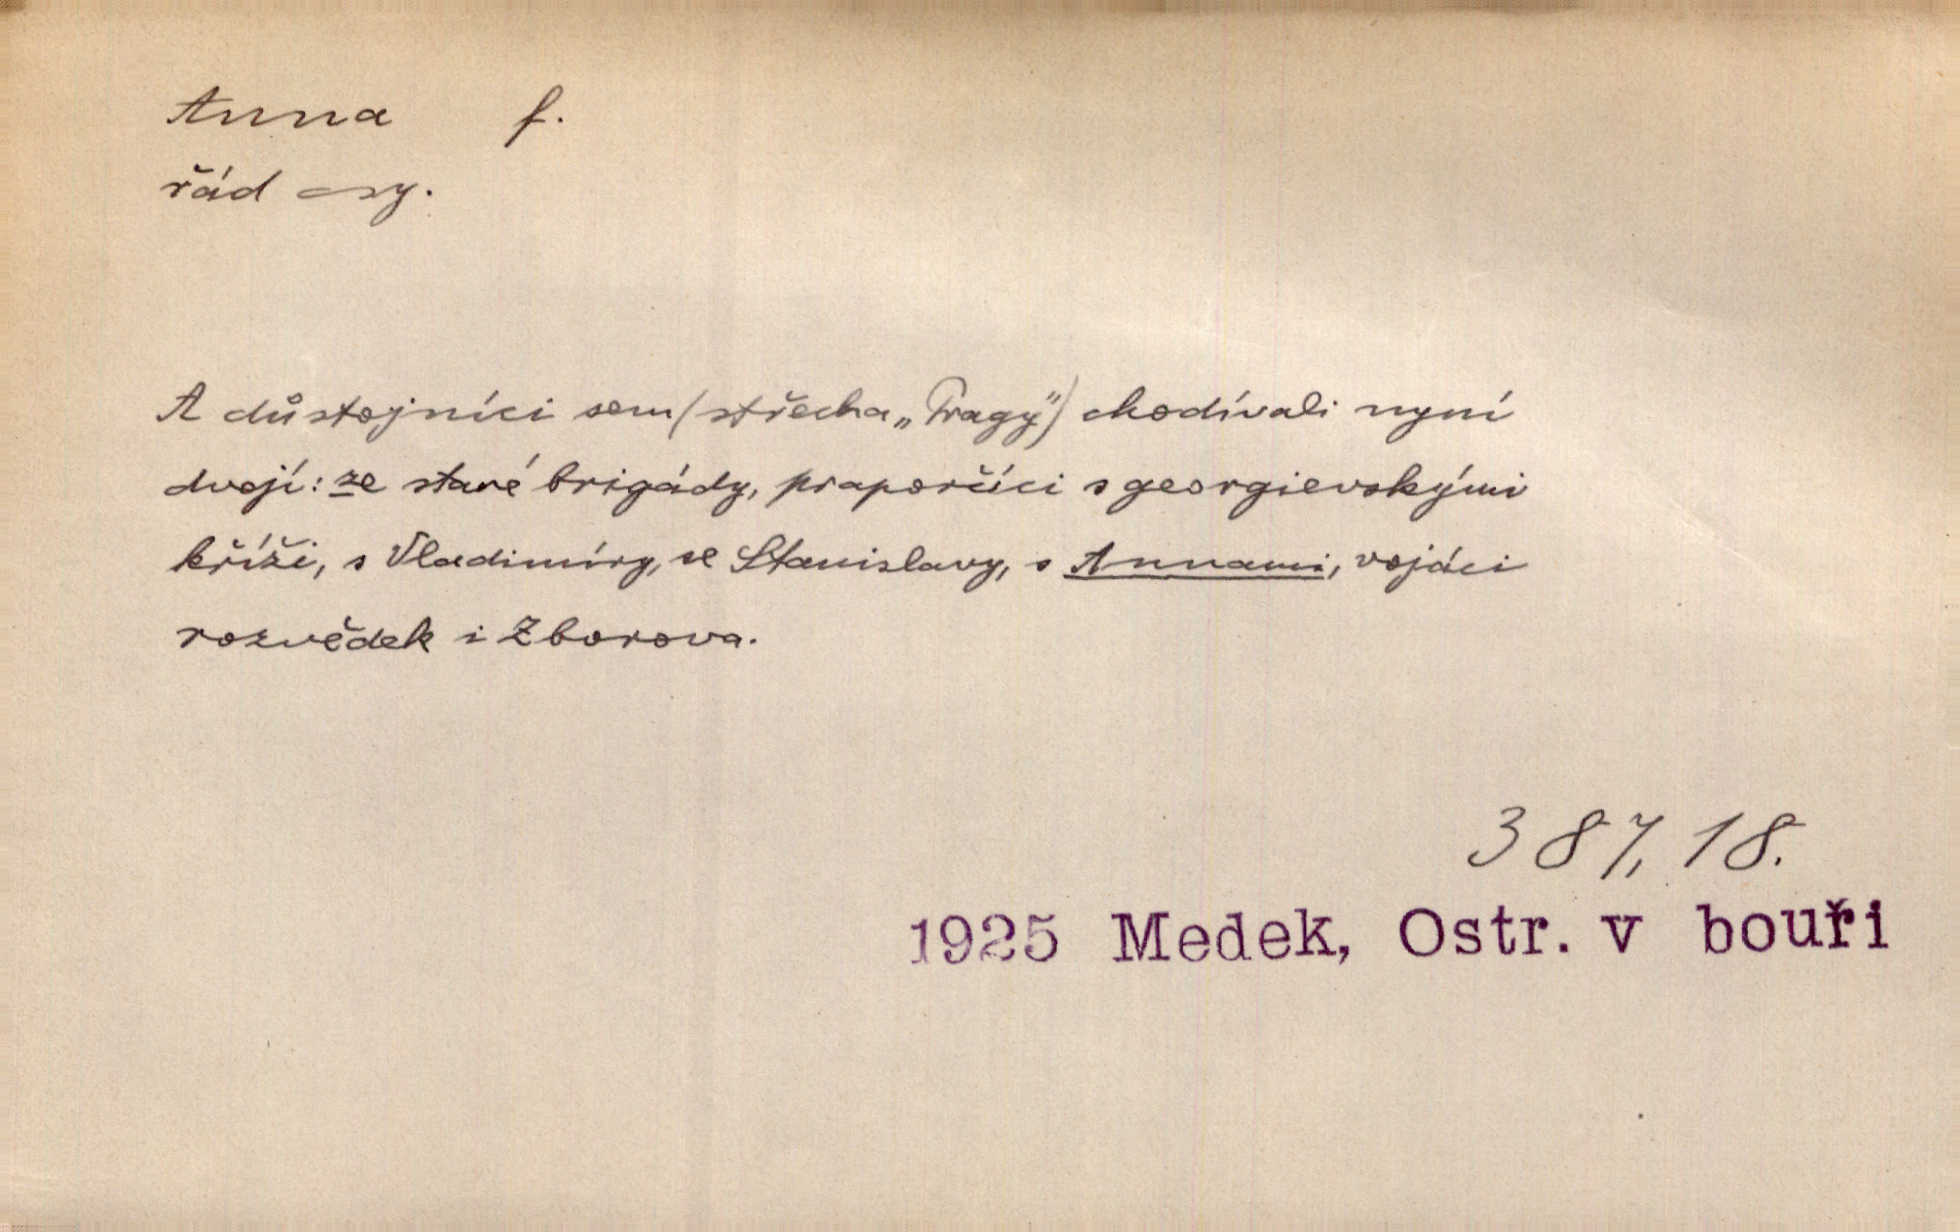 Anna f.
řád sv.
A důstojníci sem (střecha „Pragy") chodívali nyní
dvojí: ze staré brigády, praporčíci s georgievskými
kříži, s Vladimíry, se Stanislavy, s Annami, vojáci
rozvědek i Zborova.
387, 18.
1925 Medek, Ostr. v bouři